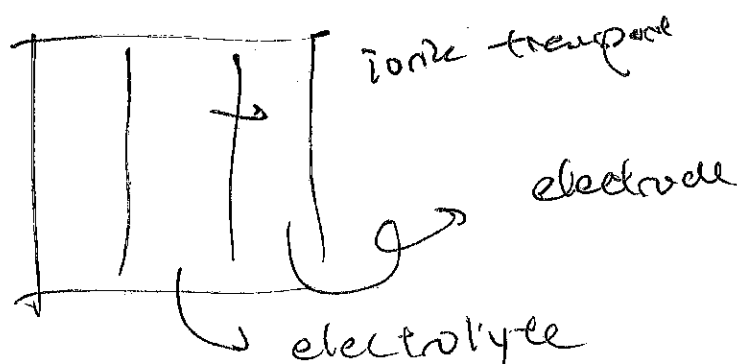 ionic transport
electrode
electrolyte